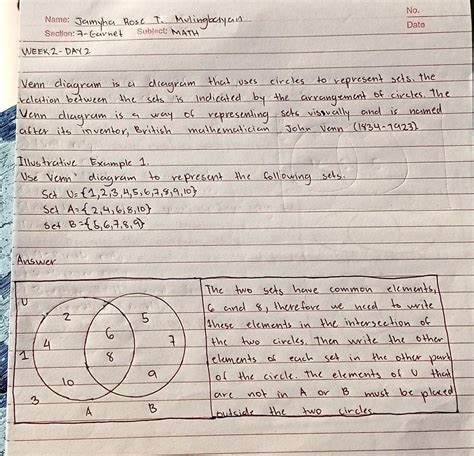 No.
Name: Jamyha Rose T. Mulingbayan
Date
Section: 7-Garnet Subject: MATH
WEEK 2 - DAY 2
Venn diagram is a diagram that uses circles to represent sets. The
relation between the sets is indicated by the arrangement of circles. The
Venn diagram is a way of representing sets visually and is named
after its inventor, British mathematician John Venn (1834-1923)
Illustrative Example 1.
Use Venn diagram to represent the following sets.
Set U={1,2,3,4,5,6,7,8,9,10}
Set A={2,4,6,8,10}
Set B={5,6,7,8,9}
Answer
U
2
5
4
6
7
8
1
10
9
3
A
B
The two sets have common elements,
6 and 8, therefore we need to write
these elements in the intersection of
the two circles. Then write the other
elements of each set in the other part
of the circle. The elements of U that
are not in A or B must be placed
outside the two circles.